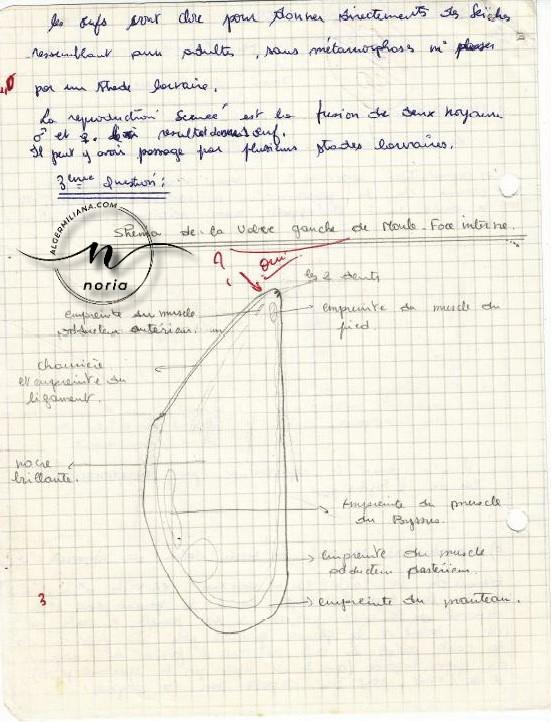 les œufs vont clore pour donner directements des Seiches
ressemblant aux adultes, sans métamorphoses ni passer
par un stade larvaire.
La reproduction Sexuée est la fusion de deux noyaux
♂ et ♀. résultat
Il peut y avoir passage par plusieurs stades larvaires.
3ème Question:
Shema de la Valve gauche de Moule-Face interne.
ALGERMILIANA.COM
n
noria
? oui
les 2 dents
empreinte du muscle
adducteur antérieur.
empreinte du muscle du
pied.
charnière
et empreinte du
ligament.
nacre
brillante.
Empreinte du muscle
du Byssus.
empreinte du muscle
adducteur postérieur.
empreinte du manteau.
3